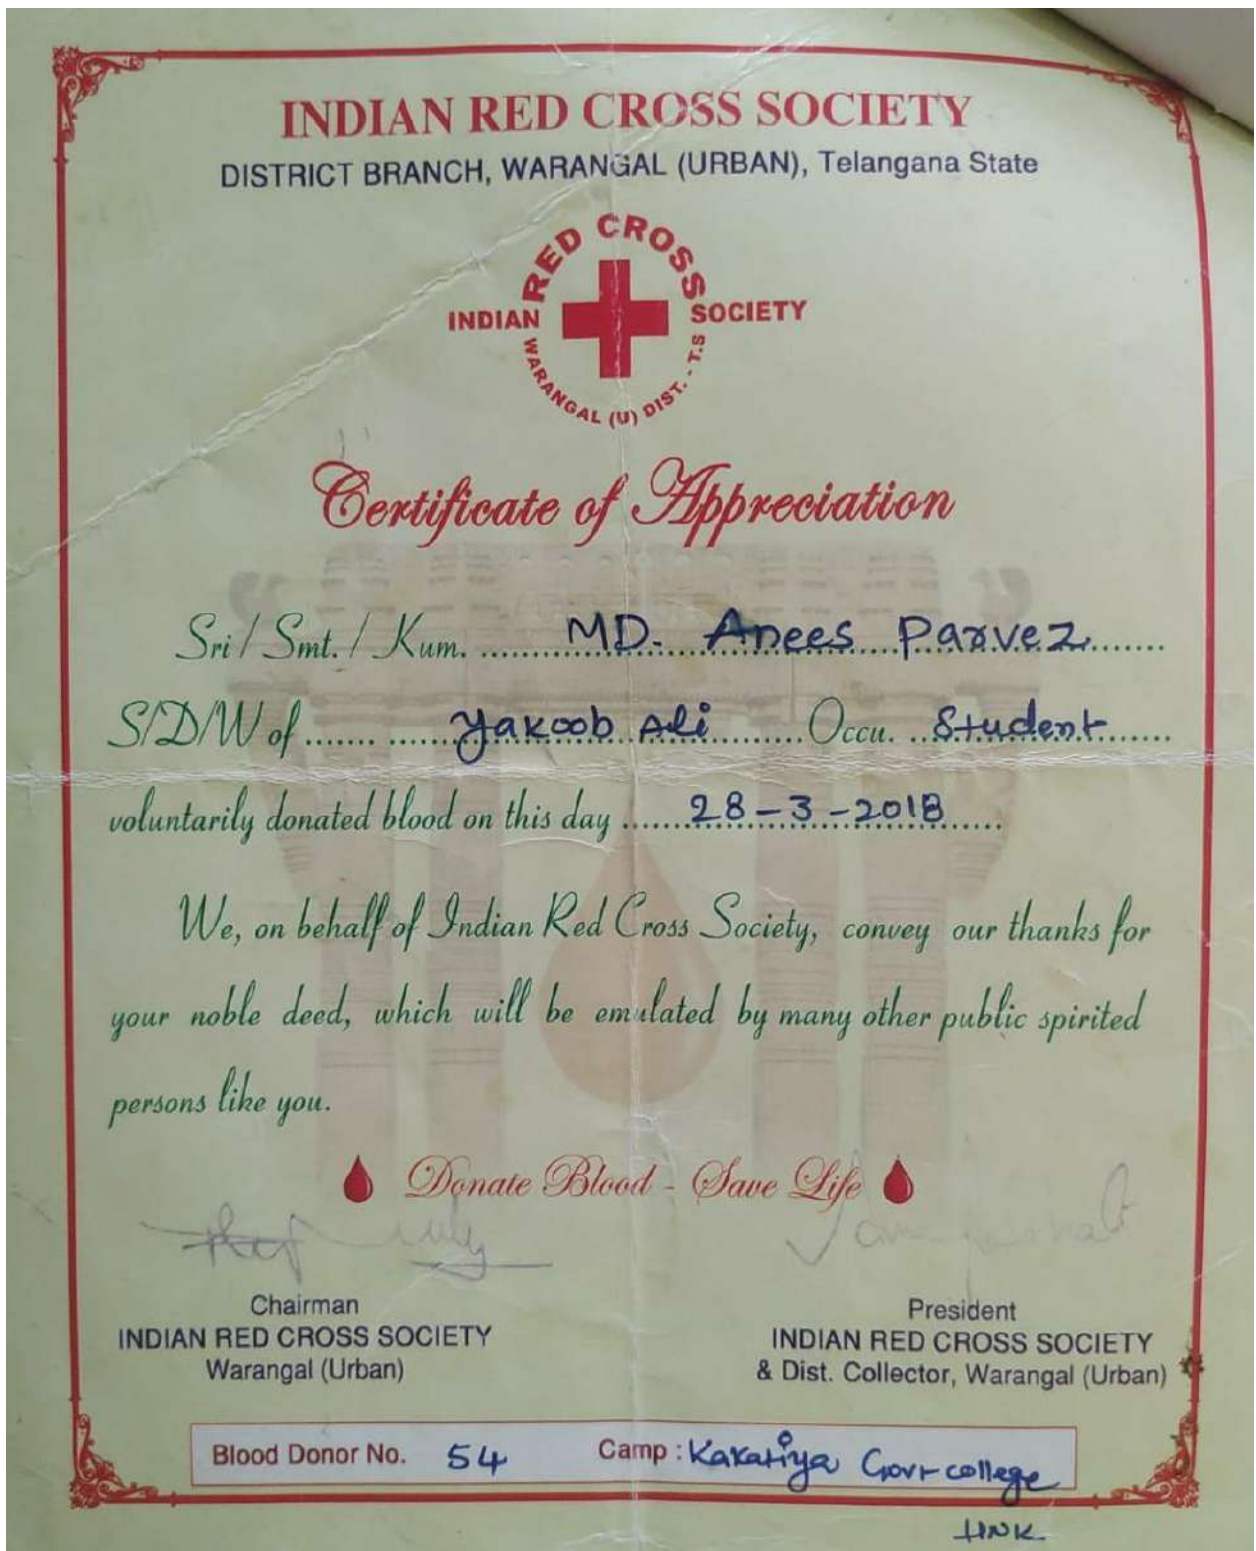 INDIAN RED CROSS SOCIETY
DISTRICT BRANCH, WARANGAL (URBAN), Telangana State
RED CROSS
INDIAN SOCIETY
WARANGAL (U) DIST. - T.S
Certificate of Appreciation
Sri / Smt. / Kum. MD. Anees Parvez
S/D/W of Yakoob Ali Occu. Student
voluntarily donated blood on this day 28-3-2018
We, on behalf of Indian Red Cross Society, convey our thanks for
your noble deed, which will be emulated by many other public spirited
persons like you.
Donate Blood - Save Life
Chairman
INDIAN RED CROSS SOCIETY
Warangal (Urban)
President
INDIAN RED CROSS SOCIETY
& Dist. Collector, Warangal (Urban)
Blood Donor No. 54 Camp : Kakatiya Govt college
HNK